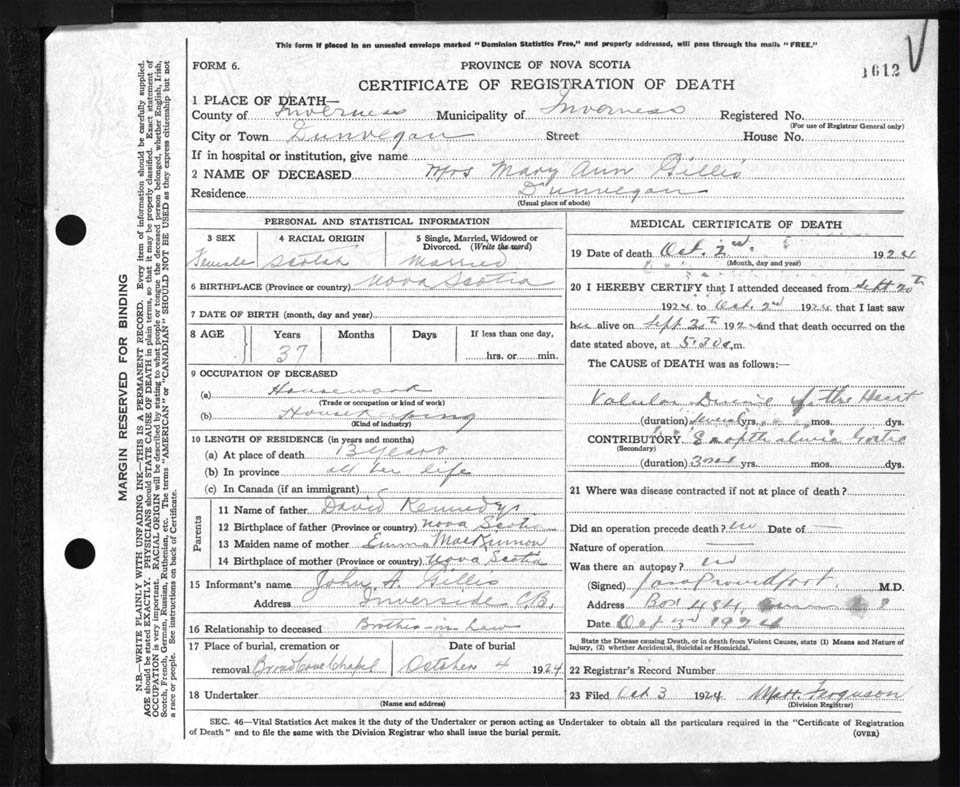 This form if placed in an unsealed envelope marked "Dominion Statistics Free," and properly addressed, will pass through the mails "FREE."
FORM 6.
PROVINCE OF NOVA SCOTIA
1612
CERTIFICATE OF REGISTRATION OF DEATH
1 PLACE OF DEATH—
County of Inverness Municipality of Inverness Registered No.
(For use of Registrar General only)
City or Town Dunvegan Street House No.
If in hospital or institution, give name
2 NAME OF DECEASED Mrs Mary Ann Gillis
Residence Dunvegan
(Usual place of abode)
MARGIN RESERVED FOR BINDING
N.B.—WRITE PLAINLY WITH UNFADING INK—THIS IS A PERMANENT RECORD. Every item of information should be carefully supplied.
AGE should be stated EXACTLY. PHYSICIANS should STATE CAUSE OF DEATH in plain terms, so that it may be properly classified. Exact statement of
OCCUPATION is very important. RACIAL ORIGIN will be described by stating to what people or tongue the deceased person belonged, whether English, Irish,
Scotch, French, German, Russian, Ruthenian, etc. The terms "AMERICAN" or "CANADIAN" SHOULD NOT BE USED as they express citizenship but not
a race or people. See instructions on back of Certificate.
PERSONAL AND STATISTICAL INFORMATION
3 SEX
Female
4 RACIAL ORIGIN
Scotch
5 Single, Married, Widowed or
Divorced. (Write the word)
Married
6 BIRTHPLACE (Province or country) Nova Scotia
7 DATE OF BIRTH (month, day and year)
8 AGE Years Months Days If less than one day,
37 hrs. or min.
9 OCCUPATION OF DECEASED
(a) Housework
(Trade or occupation or kind of work)
(b)
(Kind of industry)
10 LENGTH OF RESIDENCE (in years and months)
(a) At place of death 13 years
(b) In province all her life
(c) In Canada (if an immigrant)
Parents
11 Name of father David Kennedy
12 Birthplace of father (Province or country) Nova Scotia
13 Maiden name of mother Emma MacKinnon
14 Birthplace of mother (Province or country) Nova Scotia
15 Informant's name John A. Gillis
Address Inverside C.B.
16 Relationship to deceased Brother-in-law
17 Place of burial, cremation or Date of burial
removal Broad Cove Chapel October 4 1924
18 Undertaker
(Name and address)
MEDICAL CERTIFICATE OF DEATH
19 Date of death Oct. 2nd. 1924
(Month, day and year)
20 I HEREBY CERTIFY that I attended deceased from Sept 20th
1924 to Oct. 2nd 1924 that I last saw
her alive on Sept. 1924 and that death occurred on
date stated above, at 5.30 .m.
The CAUSE of DEATH was as follows:
of the Heart
(duration) several yrs. mos. dys.
CONTRIBUTORY
(Secondary)
(duration) yrs. mos. dys.
21 Where was disease contracted if not at place of death?
Did an operation precede death? no Date of —
Nature of operation —
Was there an autopsy? no
(Signed) M.D.
Address Box
Date Oct 3rd 1924
State the Disease causing Death, or in death from Violent Causes, state (1) Means and Nature of
Injury, (2) whether Accidental, Suicidal or Homicidal.
22 Registrar's Record Number
23 Filed Oct 3 1924 Ferguson
(Division Registrar)
SEC. 46—Vital Statistics Act makes it the duty of the Undertaker or person acting as Undertaker to obtain all the particulars required in the "Certificate of Registration
of Death" and to file the same with the Division Registrar who shall issue the burial permit.
(OVER)